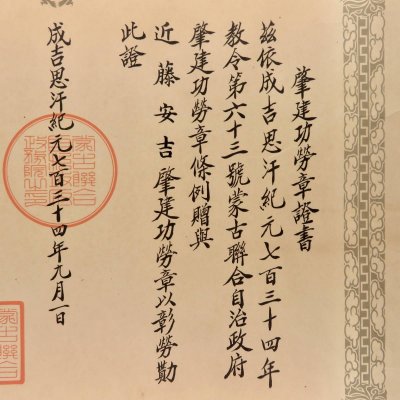 肇建功勞章證書
茲依成吉思汗紀元七百三十四年
教令第六十三號蒙古聯合自治政府
肇建功勞章條例贈與
近藤安吉肇建功勞章以彰勞勩
此證
成吉思汗紀元七百三十四年九月一日